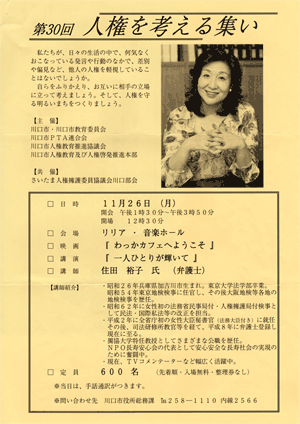 第30回 人権を考える集い
私たちが、日々の生活の中で、何気なく
おこなっている発言や行動のなかで、差別
や偏見など、他人の人権を軽視しているこ
とはないでしょうか。
自らをふりかえり、お互いに相手の立場
に立って考えましょう。そして、人権を守
る明るいまちをつくりましょう。
【主 催】
川口市・川口市教育委員会
川口市PTA連合会
川口市人権教育推進協議会
川口市人権教育及び人権啓発推進本部
【共 催】
さいたま人権擁護委員協議会川口部会
□ 日 時 11月26日（月）
開会 午後1時30分～午後3時50分
開場 12時30分
□ 会 場 リリア・音楽ホール
□ 映 画 『わっかカフェへようこそ』
□ 講 演 『一人ひとりが輝いて』
□ 講 師 住田 裕子 氏（弁護士）
【講師紹介】・昭和26年兵庫県加古川市生れ。東京大学法学部卒業。
昭和54年東京地検検事に任官し、その後大阪地検等各地の
地検検事を歴任。
・昭和62年に女性初の法務省民事局付・人権擁護局付検事と
して民法・国際私法等の改正を担当。
・平成2年に全省庁初の女性大臣秘書官（法務大臣付き）に就任
その後、司法研修所教官等を経て、平成8年に弁護士登録し
現在に至る。
・獨協大学特任教授としてさまざまな公職を歴任。
・NPO長寿安心会の代表として安心安全な長寿社会の実現の
ために奮闘中。
・現在、TVコメンテーターなど幅広く活躍中。
□ 定 員 600 名 （先着順・入場無料・整理券なし）
※当日は、手話通訳がつきます。
※問い合わせ先 川口市役所総務課 ℡258－1110 内線2566